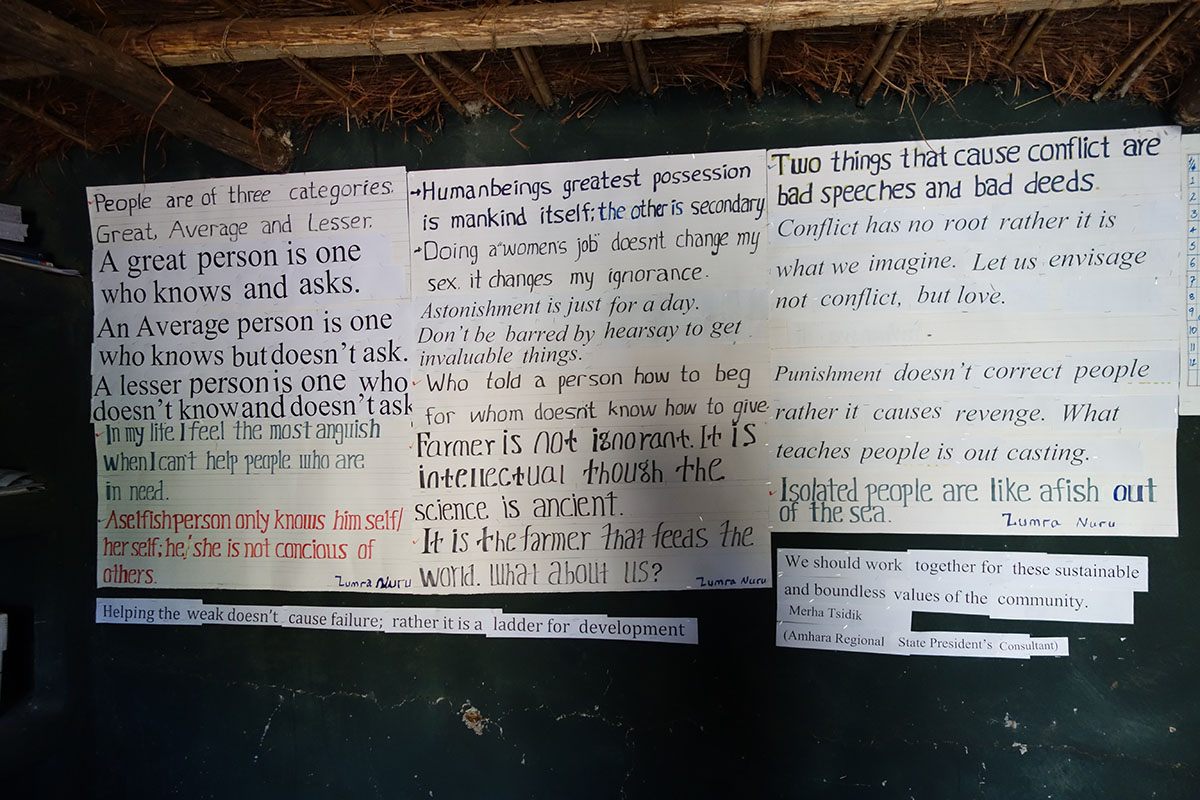 People are of three categories.
Great, Average and Lesser.
A great person is one
who knows and asks.
An Average person is one
who knows but doesn't ask.
A lesser person is one who
doesn't know and doesn't ask
In my life I feel the most anguish
when I can't help people who are
in need.
A selfish person only knows him self/
her self; he/ she is not concious of
others.
Zumra Nuru
Humanbeings greatest possession
is mankind itself; the other is secondary
Doing a "women's job" doesn't change my
sex. it changes my ignorance.
Astonishment is just for a day.
Don't be barred by hearsay to get
invaluable things.
Who told a person how to beg
for whom doesn't know how to give
Farmer is not ignorant. It is
intellectual though the
science is ancient.
It is the farmer that feeds the
world. What about us?
Zumra Nuru
Two things that cause conflict are
bad speeches and bad deeds.
Conflict has no root rather it is
what we imagine. Let us envisage
not conflict, but love.
Punishment doesn't correct people
rather it causes revenge. What
teaches people is out casting.
Isolated people are like a fish out
of the sea.
Zumra Nuru
Helping the weak doesn't cause failure; rather it is a ladder for development
We should work together for these sustainable
and boundless values of the community.
Merha Tsidik
(Amhara Regional State President's Consultant)
1
2
3
4
5
6
7
8
9
10
11
12